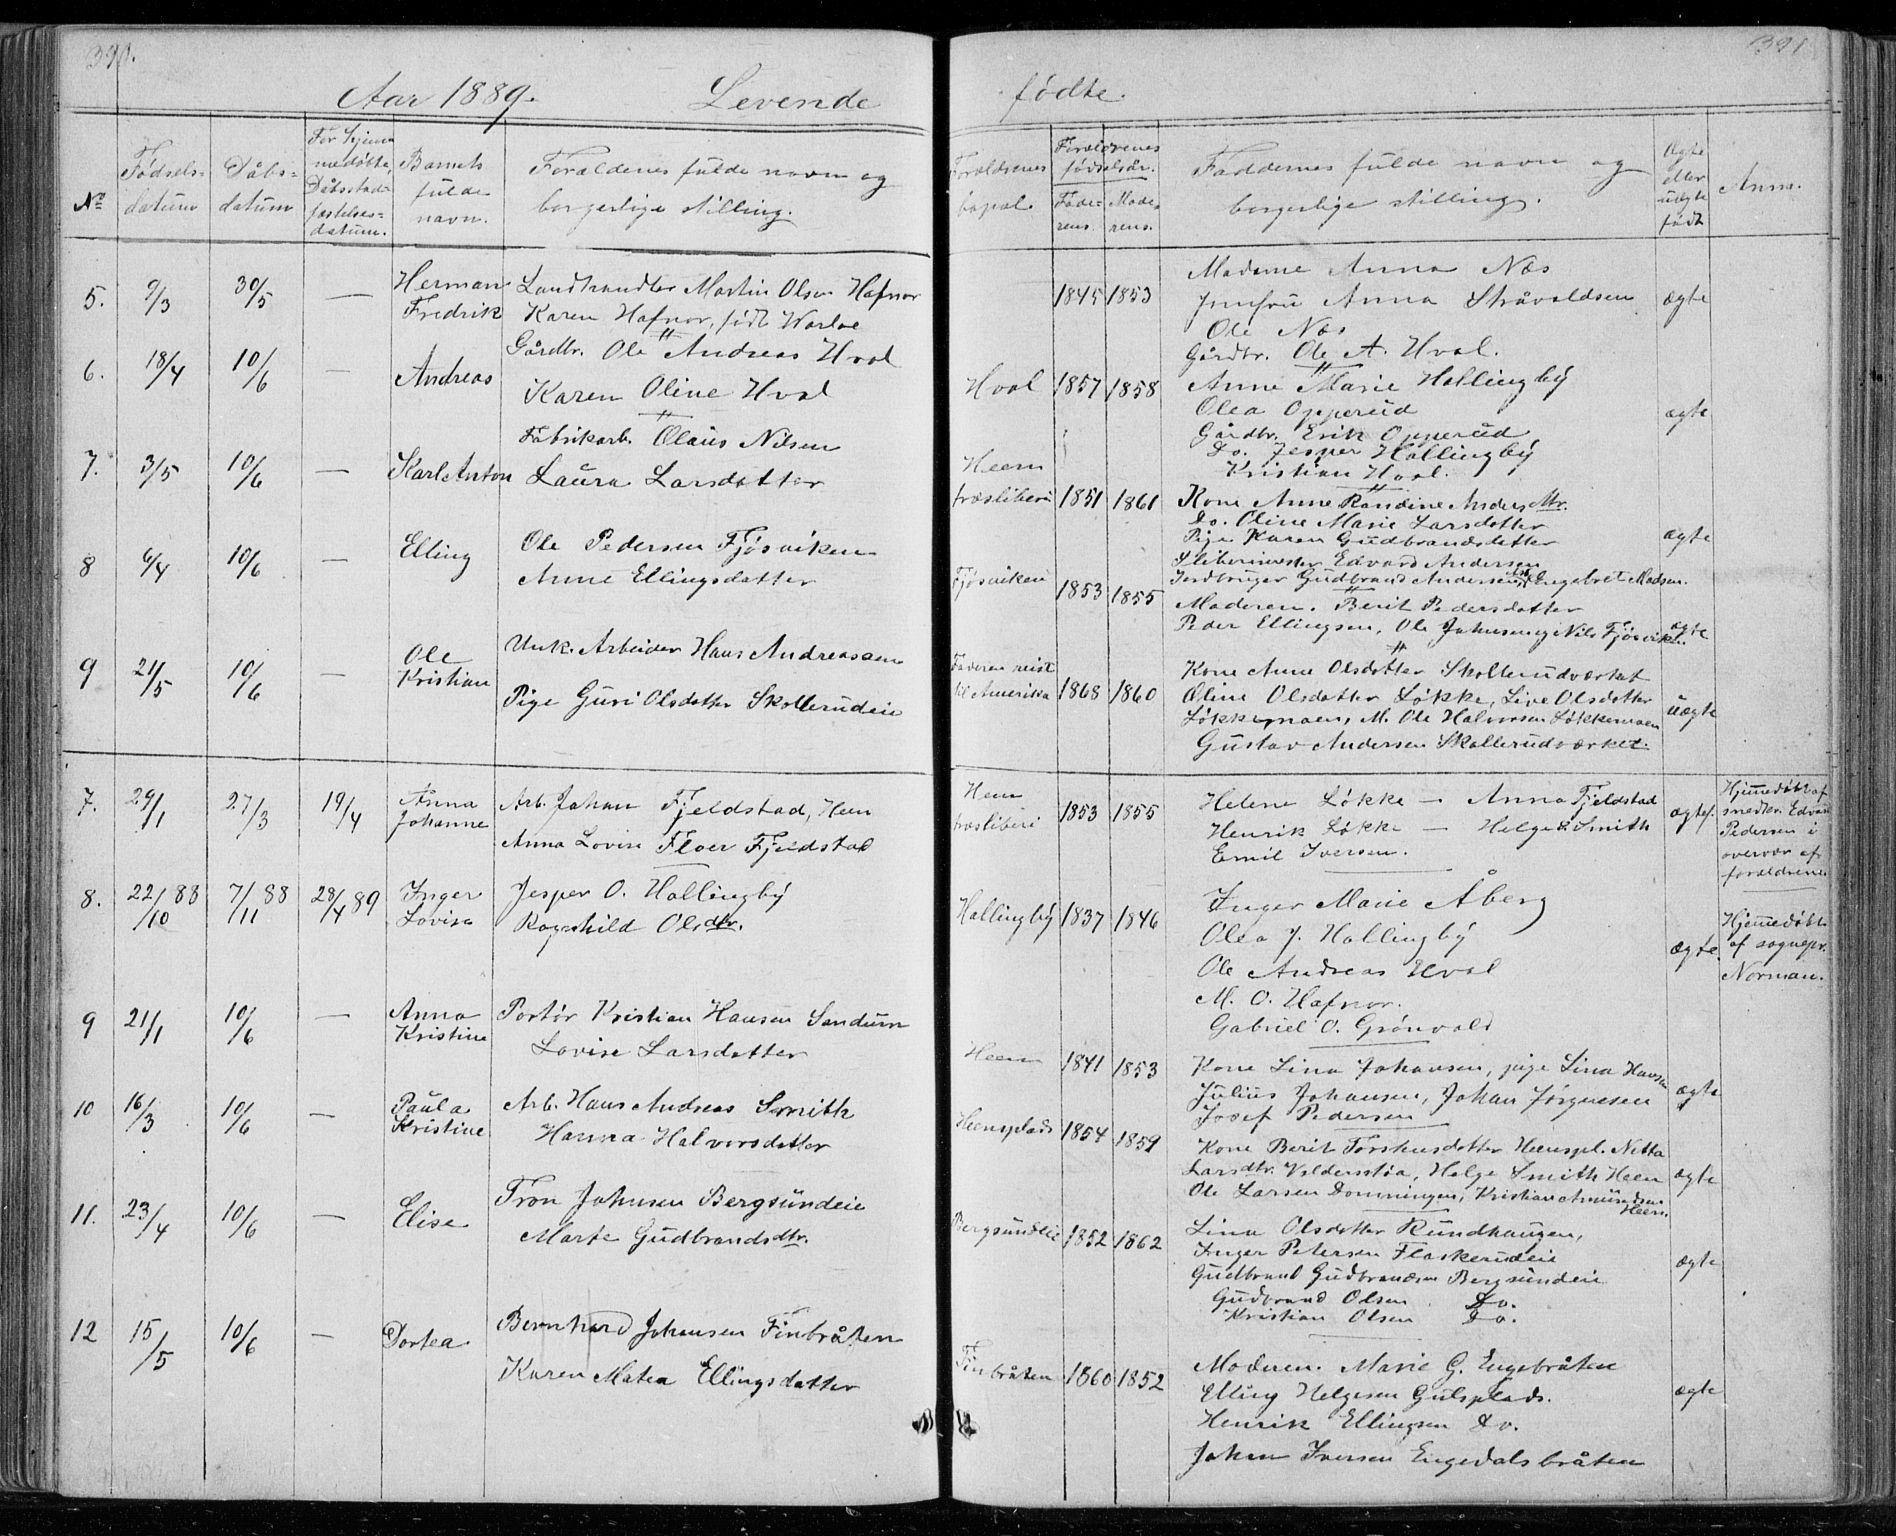 390.
391
Aar 1889. Levende fødte.
No
Fødsels-
datum
Dåbs-
datum
For hjem-
medøbte,
Dåbsstad-
fæstelses-
datum.
Barnets
fulde
navn.
Forældrenes fulde navn og
borgerlige stilling.
Forældrenes
bopæl.
Forældrenes
fødselsår.
Fade-
rens.
Mode-
rens.
Faddernes fulde navn og
borgerlige stilling.
Ægte
eller
uægte
født
Anm.
5. 9/3 30/5 — Herman
Fredrik
Landhandler Martin Olsen Hafnor
Karen Hafnor, født Warloe
1845 1853
Madame Anna Næs
Jomfru Anna Skråvoldsen
Ole Næs
ægte
6. 18/4 10/6 — Andreas
Gårdbr. Ole Andreas Hval
Karen Oline Hval
Hval 1857 1858
Gårdbr. Ole A. Hval.
Anne Marie Hallingby
Olea Opperud
Gårdbr. Erik Opperud
Do. Jesper Hallingby
Kristian Hval.
ægte
7. 3/5 10/6 — Karl Anton
Fabrikarb. Olaus Nilsen
Laura Larsdatter
Heens
træsliberi 1851 1861
Kone Anne Randine Andersdtr.
Do. Oline Marie Larsdatter
Pige Karen Gudbrandsdatter
Slibermester Edvard Andersen
Jordbruger Gudbrand Andersen og Engebret Madsen.
ægte
8 6/4 10/6 — Elling
Ole Pedersen Fjøsviken
Anne Ellingsdatter
Fjøsviken 1853 1855
Moderen. Berit Pedersdatter
Peder Ellingsen, Ole Johnsen og Nils Fjøsviken.
ægte
9 21/5 10/6 — Ole
Kristian
Unk. Arbeider Hans Andreassen
Pige Guri Olsdatter Skollerudeie
Faderen reist
til Amerika 1868 1860
Kone Anne Olsdatter Skollerudværket
Oline Olsdatter Løkke, Live Olsdatter
Løkkemoen, M. Ole Halvorsen Løkkemoen
Gustav Andersen Skollerudværket.
uægte
7. 29/1 27/3 19/4 Anna
Johanne
Arb. Johan Fjeldstad, Heen
Anna Lovise Floer Fjeldstad
Heen
træsliberi 1853 1855
Helene Løkke — Anna Fjeldstad
Henrik Løkke — Helge S. Smith
Emil Iversen.
ægte.
Hjemmedøbt af
smedm. Edvard
Pedersen i
overvær af
forældrene
8. 22/10 88 7/11 88 28/4 89 Inger
Lovise
Jesper O. Hallingby
Ragnhild Olsdtr.
Hallingby 1837 1846
Inger Marie Åberg
Olea J. Hallingby
Ole Andreas Hval
M. O. Hafnor.
Gabriel O. Grønvold
ægte.
Hjemmedøbt
af sognepr.
Norman.
9 21/1 10/6 — Anna
Kristine
Portør Kristian Hansen Sandum
Lovise Larsdatter
Heen 1841 1853
Kone Lina Johansen, pige Lina Hansen
Julius Johansen, Johan Jørgensen
Josef Pedersen
ægte
10 16/3 10/6 — Paula
Kristine
Arb. Hans Andreas Smith
Hanna Halvorsdatter
Heensplads 1854 1859
Kone Berit Torshusdatter Heenspl. Netta
Larsdtr. Veldersstøa, Helge Smith Heen
Ole Larsen Domningen, Kristian Amundsen
Heen.
ægte
11. 23/4 10/6 — Elise
Tron Johnsen Bergsundeie
Marte Gudbrandsdtr.
Bergsundeie 1852 1862
Lina Olsdatter Rundhaugen,
Inger Petersen Flaskerudeie
Gudbrand Gudbrandsen Bergsundeie
Gudbrand Olsen Do.
Kristian Olsen Do.
ægte
12 15/5 10/6 — Dortea
Bernhard Johansen Finbråten
Karen Matea Ellingsdatter
Finbråten 1860 1852
Moderen. Marie G. Engebråten
Elling Helgesen Gulsplads.
Henrik Ellingsen Do.
Johan Iversen Engedalsbråten
ægte